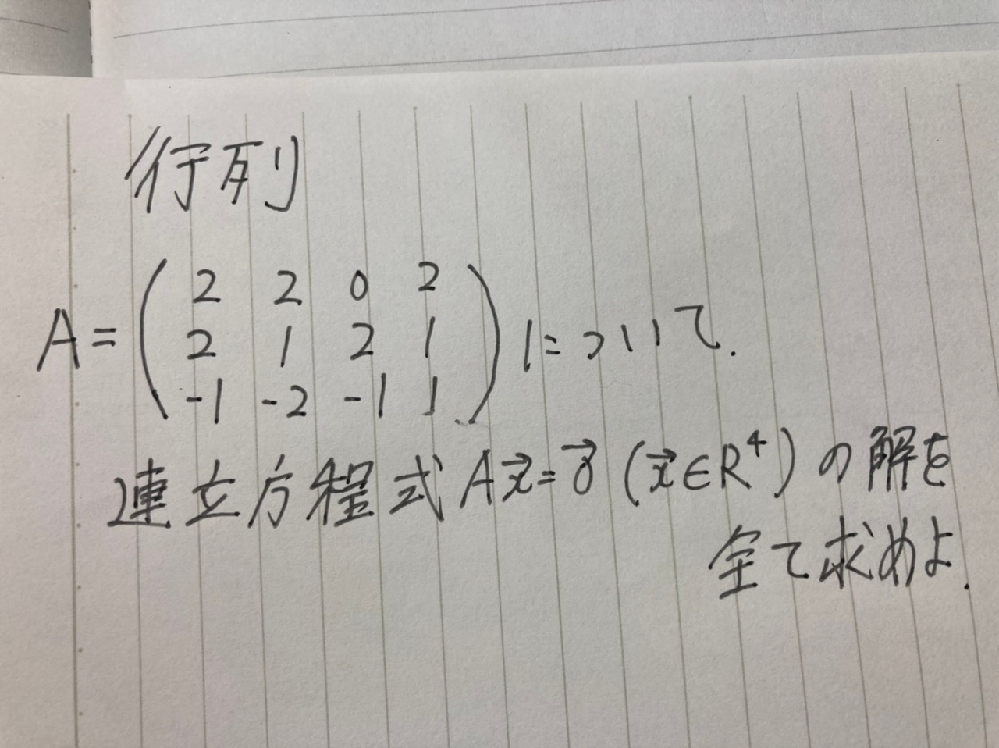 行列
A = ( 2 2 0 2
2 1 2 1
-1 -2 -1 1 ) について.
連立方程式 Ax⃗=0⃗ (x⃗∈R⁴) の解を
全て求めよ.